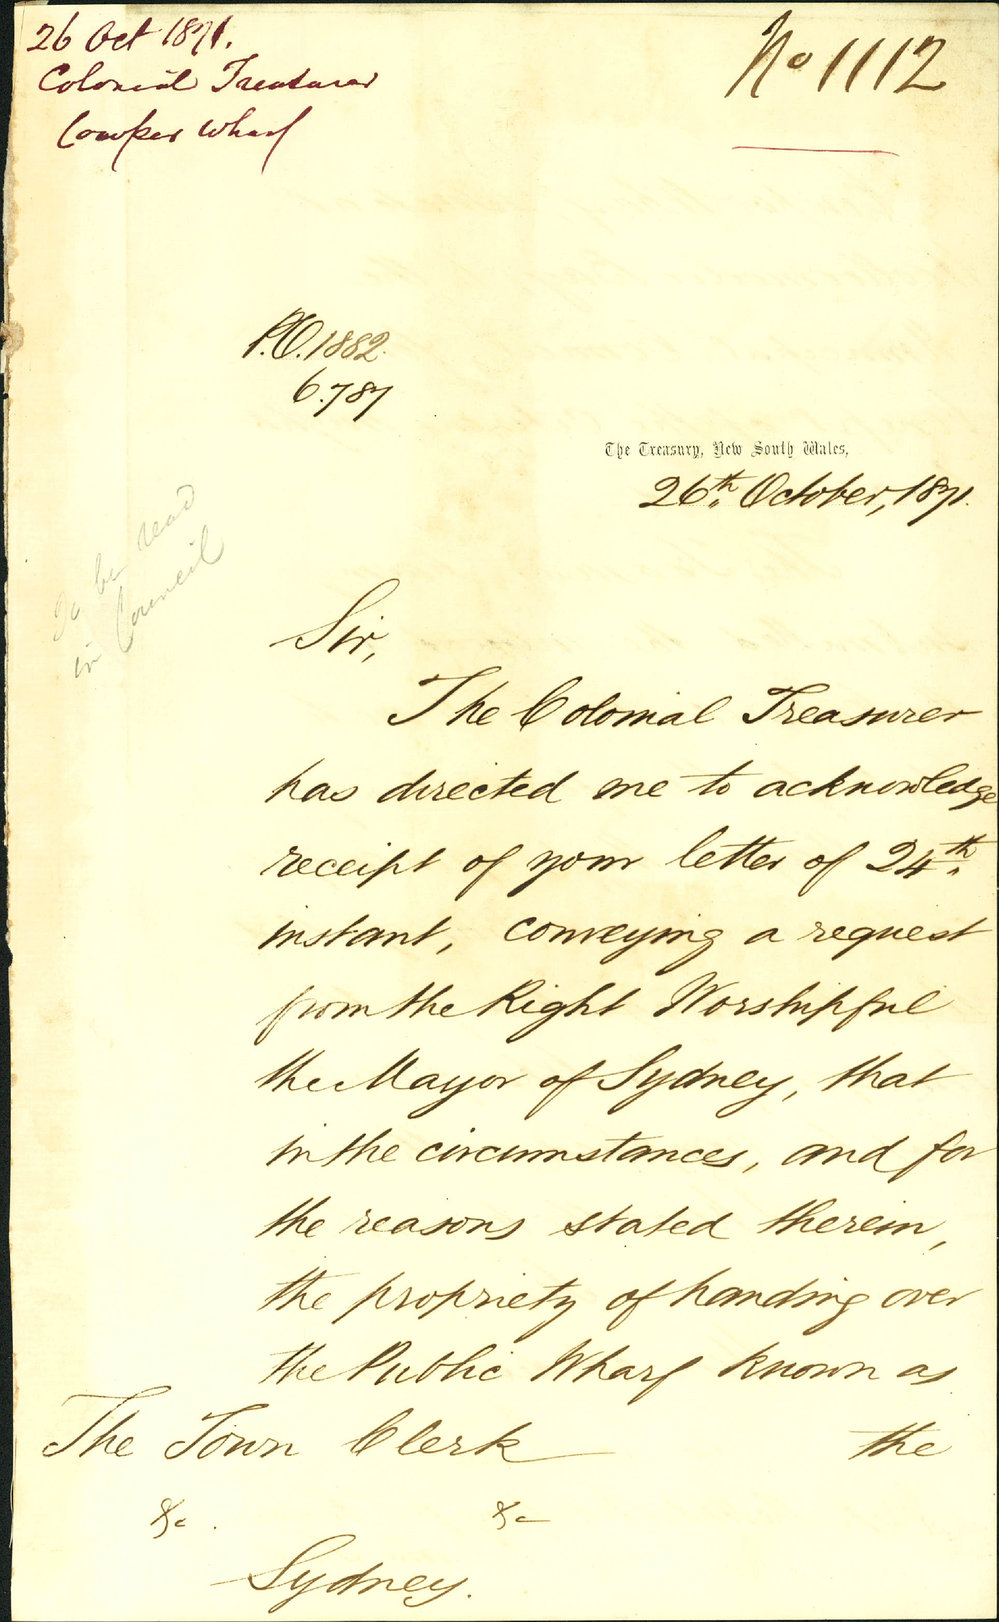 26 Oct 1871.
Colonial Treasurer
Cowper Wharf
No 1112
P.O. 1882.
6.787
The Treasury, New South Wales,
26th October, 1871.
To be read
in Council
Sir,
The Colonial Treasurer
has directed me to acknowledge
receipt of your letter of 24th
instant, conveying a request
from the Right Worshipful
the Mayor of Sydney, that
in the circumstances, and for
the reasons stated therein,
the propriety of handing over
the Public Wharf known as
The Town Clerk
the
&c. &c
Sydney.